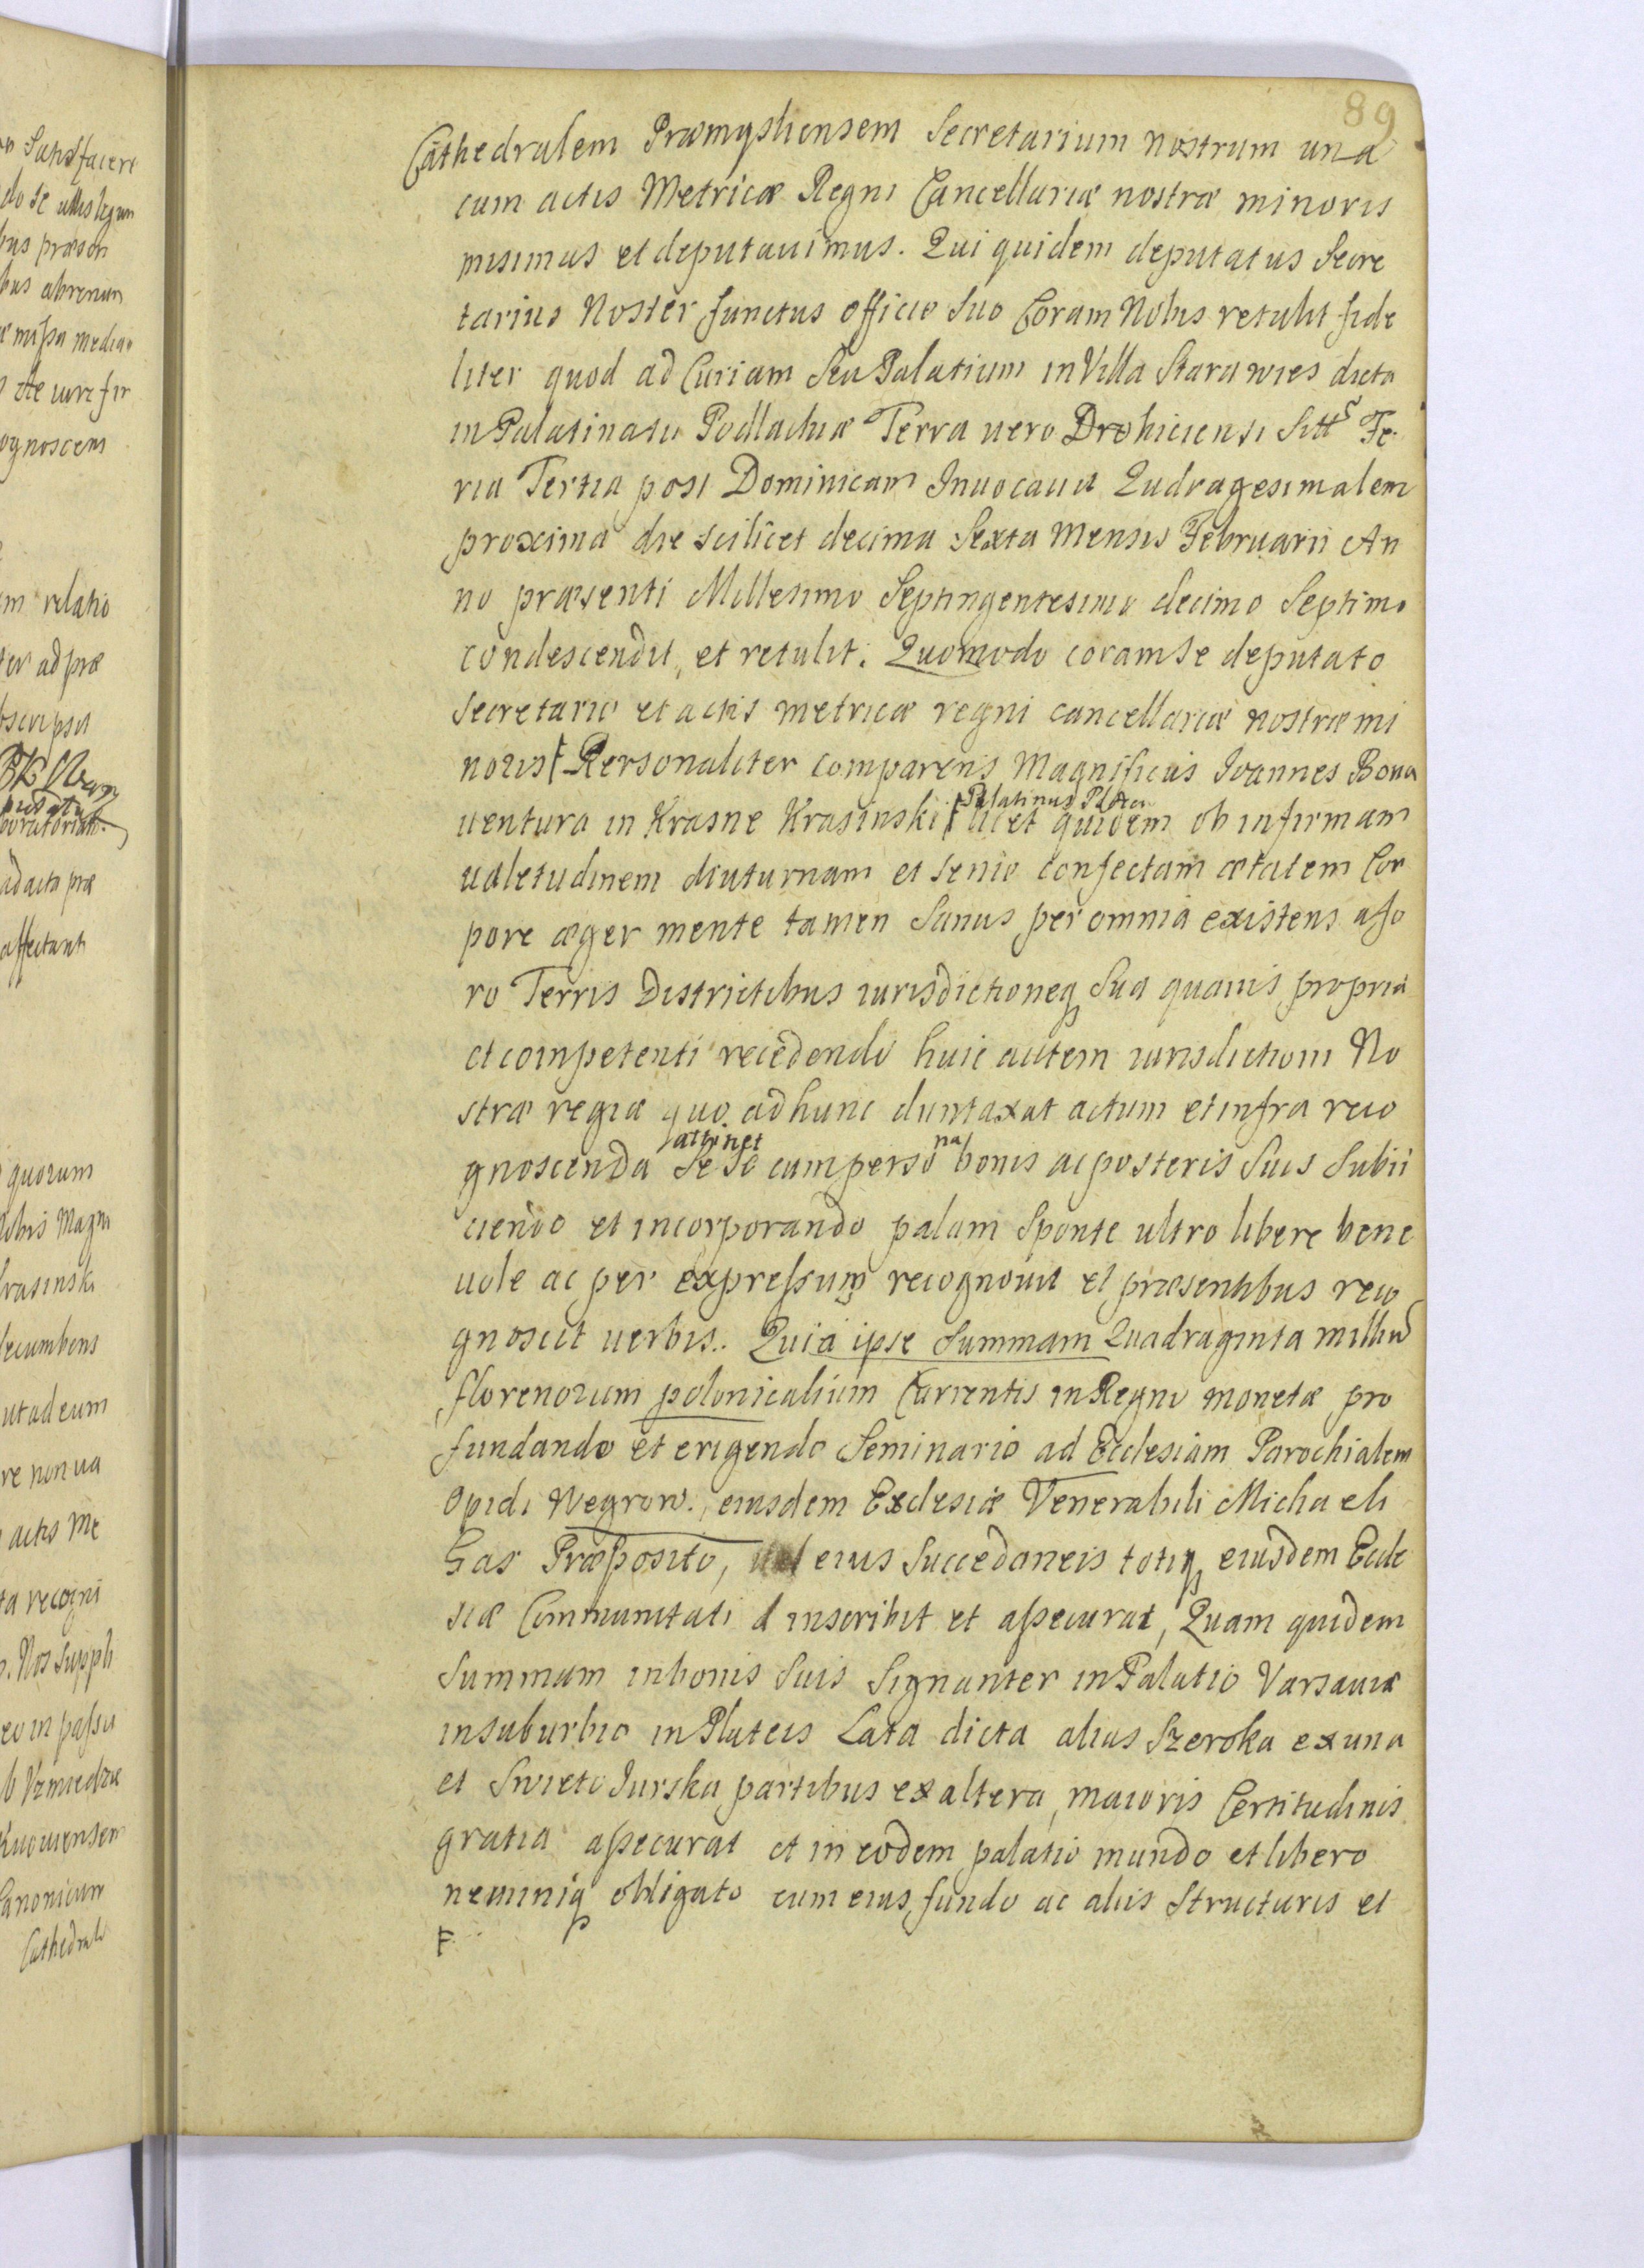 89
Cathedralem Præmysliensem Secretarium nostrum una
cum actis Metricæ Regni Cancellariæ nostræ minoris
misimus et deputauimus. Qui quidem deputatus Secre
tarius Noster functus officio Suo Coram Nobis retulit fide
liter quod ad Curiam Seu Palatium in Villa Stara wies dicta
in Palatinatu Podlachiæ Terra uero Drohiciensi Fe
ria Tertia post Dominicam Inuocauit Qudragesimalem
proxima die scilicet decima Sexta Mensis Februarii An
no præsenti Millesimo Septingentesimo decimo Septimo
condescendit, et retulit. Quomodo coram se deputato
Secretario et actis metricæ regni cancellariæ nostræ mi
noris Personaliter comparens Magnificus Ioannes Bona
Palatinus Plocen
uentura in Krasne Krasinski licet quidem ob infirmam
ualetudinem diuturnam et senio confectam ætatem Cor
pore æger mente tamen Sanus per omnia existens a fo
ro Terris Districtibus iurisdictioneq Sua quauis propria
et competenti recedendo huic autem iurisdictioni No
stræ regiæ quo ad hunc duntaxat actum et infra reco
attinet na
gnoscenda Se se cum perso bonis ac posteris Suis Subii
ciendo et incorporando palam Sponte ultro libere bene
uole ac per expressum recognouit et præsentibus reco
gnoscit uerbis.. Quia ipse Summam Quadraginta milliu
florenorum polonicalium Currentis in Regno monetæ pro
fundando et erigendo Seminario ad Ecclesiam Parochialem
Opidi Wegrow. eiusdem Ecclesiæ Venerabili Michaeli
Gas Præposito, uel eius Succedaneis totiq eiusdem Eccle
siæ Communitati inscribit et assecurat, Quam quidem
Summam in bonis Suis Signanter in Palatio Varsauiæ
in suburbio in Plateis Lata dicta alias Szeroka ex una
et Swieto Jurska partibus ex altera, maioris Certitudinis
gratia assecurat et in eodem palatio mundo et libero
neminiq obligato cum eius fundo ac aliis Structuris et